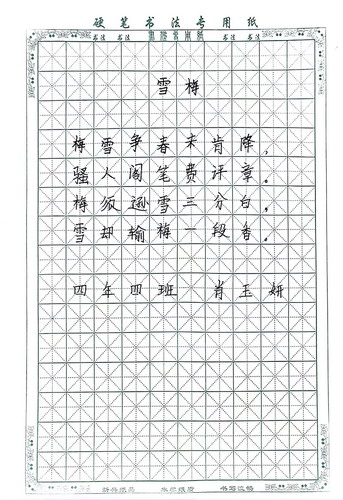 硬笔书法专用纸
书法 书法 书法 书法
雪梅
梅雪争春未肯降，
骚人阁笔费评章。
梅须逊雪三分白，
雪却输梅一段香。
四年四班 肖玉妍